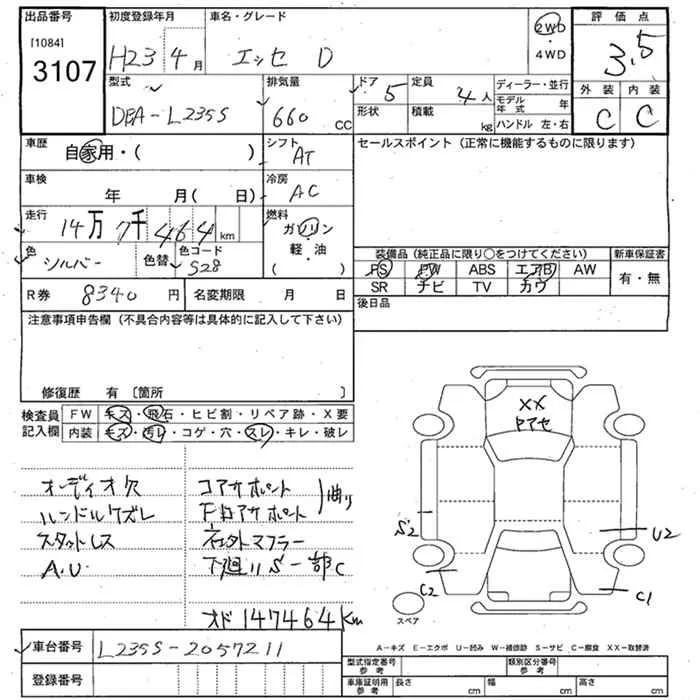 出品番号 初度登録年月 車名・グレード 2WD ・ 4WD 評価点
[1084]
3107 H23 4月 エッセ D 3.5
型式 排気量 ドア 定員 ディーラー・並行 外装 内装
DBA-L235S 660 cc 5 4人 モデル年式 年 C C
形状 積載 kg ハンドル 左・右
車歴 自家用・( ) シフト AT セールスポイント (正常に機能するものに限ります)
車検 年 月( 日) 冷房 AC
走行 14万7千464km 燃料 ガソリン
軽・油
( )
色 シルバー 色替 色コード S28 装備品 (純正品に限り○をつけてください) 新車保証書
PS PW ABS エアB AW 有・無
SR ナビ TV カワ
R券 8340円 名変期限 月 日 後日品
注意事項申告欄 (不具合内容等は具体的に記入して下さい)
修復歴 有 〔箇所
検査員 FW キズ・飛石・ヒビ割・リペア跡・X要
記入欄 内装 キズ・汚レ・コゲ・穴・スレ・キレ・破レ
XX
オーディオ欠 コアサポート 曲り
ハンドルスレ
スタットレス 社外マフラー
A.U. 下廻りS一部C
S2 U2
C2 C1
スペア
オド 147464km
車台番号 L235S-2057211
A-キズ E-エクボ U-凹み W-補修跡 S-サビ C-腐食 XX-取替済
型式指定番号 参考 類別区分番号 参考
登録番号 車庫証明用 参考 長さ cm 幅 cm 高さ cm